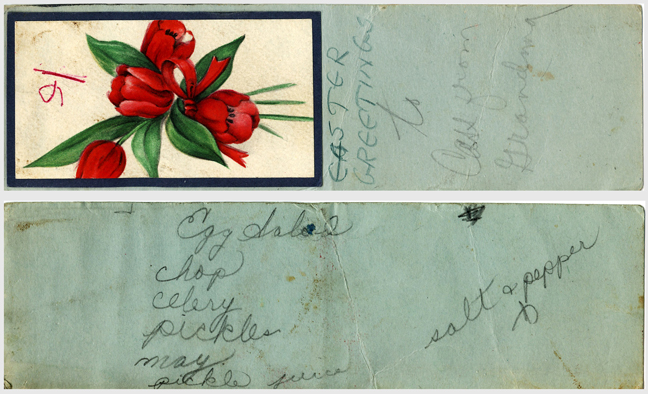 EASTER
GREETINGS
to
Cass from
Grandma
Egg Salad
chop
celery
pickles
may
pickle juice
salt & pepper